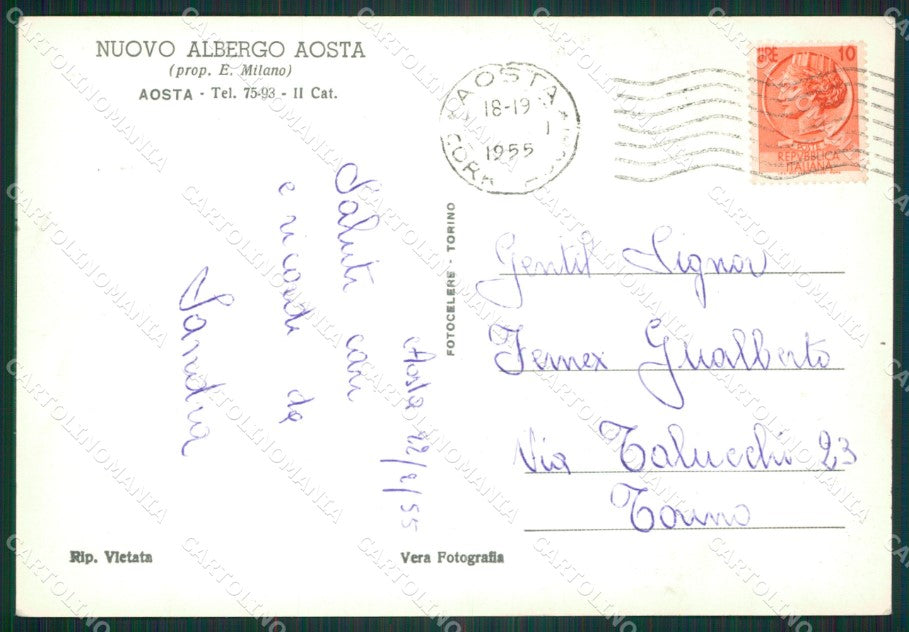 NUOVO ALBERGO AOSTA
(prop. E. Milano)
AOSTA - Tel. 75-93 - II Cat.
AOSTA
18-19
I
1955
CORR
LIRE 10
REPVBBLICA
ITALIANA
Aosta 22/1/55
Saluti cari
e ricordi da
Sandra
FOTOCELERE - TORINO
Gentil Signor
Fernex Gualberto
Via Talucchi 23
Torino
Rip. Vietata
Vera Fotografia
CARTOLINOMANIA